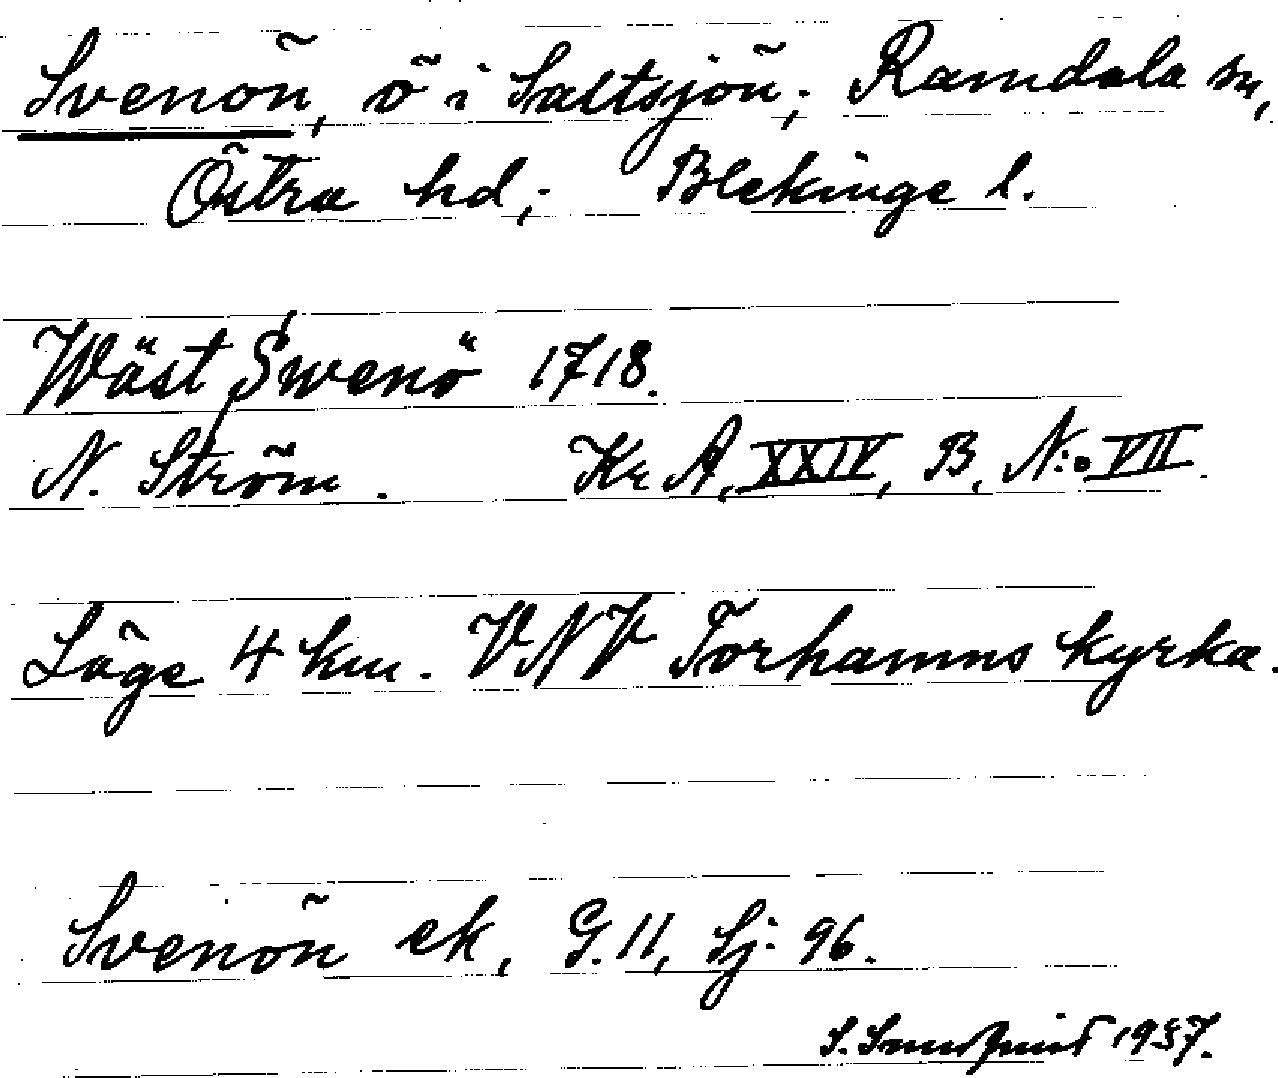 Svenön, ö i Saltsjön; Ramdala sn,
Östra hd; Blekinge l.
Wäst Swenö 1718.
N. Ström. Kr A, XXIV, B, N:o VII.
Läge 4 km. VNV Torhamns kyrka.
Svenön ek, G. 11, Sj: 96.
S. 1937.